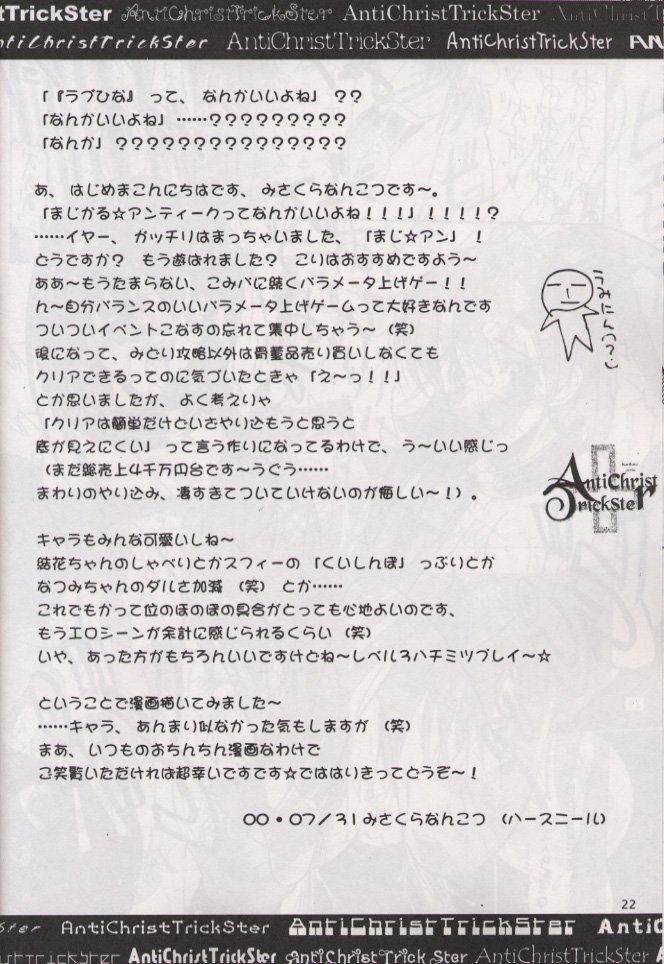 tTrickSter AntiChristTrickSter AntiChristTrickSter AntiChristTrickSter
ntiChristTrickSter AntiChristTrickSter AntiChristTrickSter AN
「『ラブひな』 って、 なんかいいよね」 ？？
「なんかいいよね」……？？？？？？？？？
「なんか」？？？？？？？？？？？？？？？
あ、 はじめまこんにちはです、 みさくらなんこつです～。
「まじかる☆アンティークってなんかいいよね！！！」！！！！？
……イヤー、 ガッチリはまっちゃいました、 「まじ☆アン」 ！
どうですか？ もう遊ばれました？ こりはおすすめですよう～
ああ～もうたまらない、こみパに続くパラメータ上げゲー！！
ん～自分バランスのいいパラメータ上げゲームって大好きなんです
ついついイベントこなすの忘れて集中しちゃう～（笑）
後になって、みどり攻略以外は骨董品売り買いしなくても
クリアできるってのに気づいたときゃ「え～っ！！」
とか思いましたが、 よく考えりゃ
「クリアは簡単だけどいざやり込もうと思うと
底が見えにくい」 って言う作りになってるわけで、 う～いい感じっ
（まだ総売上4千万円台です～うぐう……
まわりのやり込み、凄すぎてついていけないのが悔しい～！）。
キャラもみんな可愛いしね～
結花ちゃんのしゃべりとかスフィーの「くいしんぼ」 っぷりとか
なつみちゃんのダルさ加減（笑）とか……
これでもかって位のほのぼの具合がとっても心地よいのです、
もうエロシーンが余計に感じられるくらい（笑）
いや、あった方がもちろんいいですけどね～レベル3ハチミツプレイ～☆
ということで漫画描いてみました～
……キャラ、 あんまり似なかった気もしますが（笑）
まあ、 いつものおちんちん漫画なわけで
ご笑覧いただければ超幸いですです☆でははりきってどうぞ～！
00・07/31みさくらなんこつ （ハースニール）
うみにんっ？：）
AntiChrist
TrickSter
22
Ster AntiChristTrickSter AntiChristTrickSter AntiC
stTrickSter AntiChristTrickSter AntiChristTrickSter AntiChristTrickSter